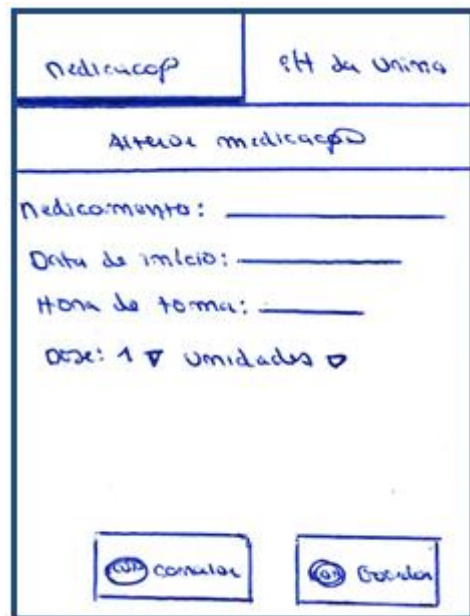 Medicação
pH da Urina
Alterar medicação
Medicamento:
Data de início:
Hora de toma:
Dose: 1 unidades
Cancelar